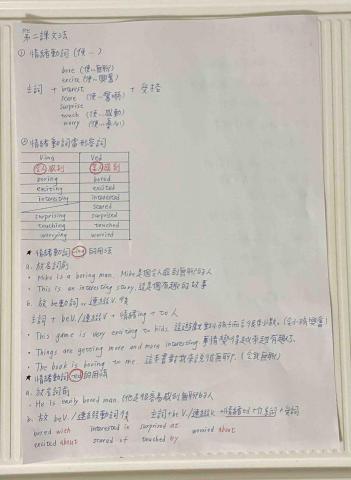 第二課文法
① 情緒動詞 (使...)
bore (使...無聊)
excite (使...興奮)
主詞 + interest + 受格
scare (使...驚嚇)
surprise
touch (使...感動)
worry (使...擔心)
② 情緒動詞當形容詞
Ving Ved
boring bored
exciting excited
interesting interested
scared
surprising surprised
touching touched
worrying worried
★ 情緒動詞-ing的用法
a. 放名詞前
• Mike is a boring man. Mike是個令人感到無聊的人
• This is an interesting story. 這是個有趣的故事
b. 放be動詞or連綴V.後
主詞 + be V./連綴V + 情緒ing + to 人
• This game is very exciting to kids.
• Things are getting more and more interesting. 事情變得越來越有趣了.
• The book is boring to me. 這本書對我來說很無聊. (令我無聊)
★ 情緒動詞-ed的用法
a. 放名詞前
• He is easily bored man. (他是很容易感到無聊的人
b. 放 be V./連綴動詞後 主詞+be V./連綴V.+情緒ed+介系詞+受詞
bored with interested in surprised at worried about
excited about scared of touched by